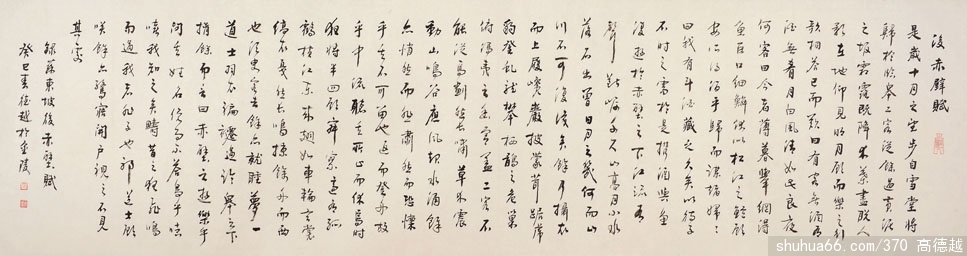 後赤壁賦
是歲十月之望步自雪堂將
歸於臨皋二客從餘過黃泥
之坂霜露既降木葉盡脫人
影在地仰見明月顧而樂之行
歌相答已而歎曰有客無酒有
酒無肴月白風清如此良夜
何客曰今者薄暮舉網得
魚巨口細鱗狀似松江之鱸顧
安所得酒乎歸而謀諸婦婦
曰我有斗酒藏之久矣以待子
不時之需於是攜酒與魚
復遊於赤壁之下江流有
聲斷岸千尺山高月小水
落石出曾日月之幾何而山
川不可復識矣餘乃攝衣
而上履巉巖披蒙茸踞虎
豹登虬龍攀栖鶻之危巢
俯馮夷之幽宮蓋二客不
能從焉劃然長嘯草木震
動山鳴谷應風起水涌餘
亦悄然而悲肅然而恐凜
乎其不可留也返而登舟放
乎中流聽其所止而休焉時
夜將半四顧寂寥適有孤
鶴橫江東來翅如車輪玄裳
縞衣戛然長鳴掠餘舟而西
也須臾客去餘亦就睡夢一
道士羽衣蹁躚過臨皋之下
揖餘而言曰赤壁之遊樂乎
問其姓名俛而不答嗚乎噫
嘻我知之矣疇昔之夜飛鳴
而過我者非子也邪道士顧
笑餘亦驚寤開戶視之不見
其處
錄蘇東坡後赤壁賦
癸巳春德越於金陵
shuhua66.com/370 高德越